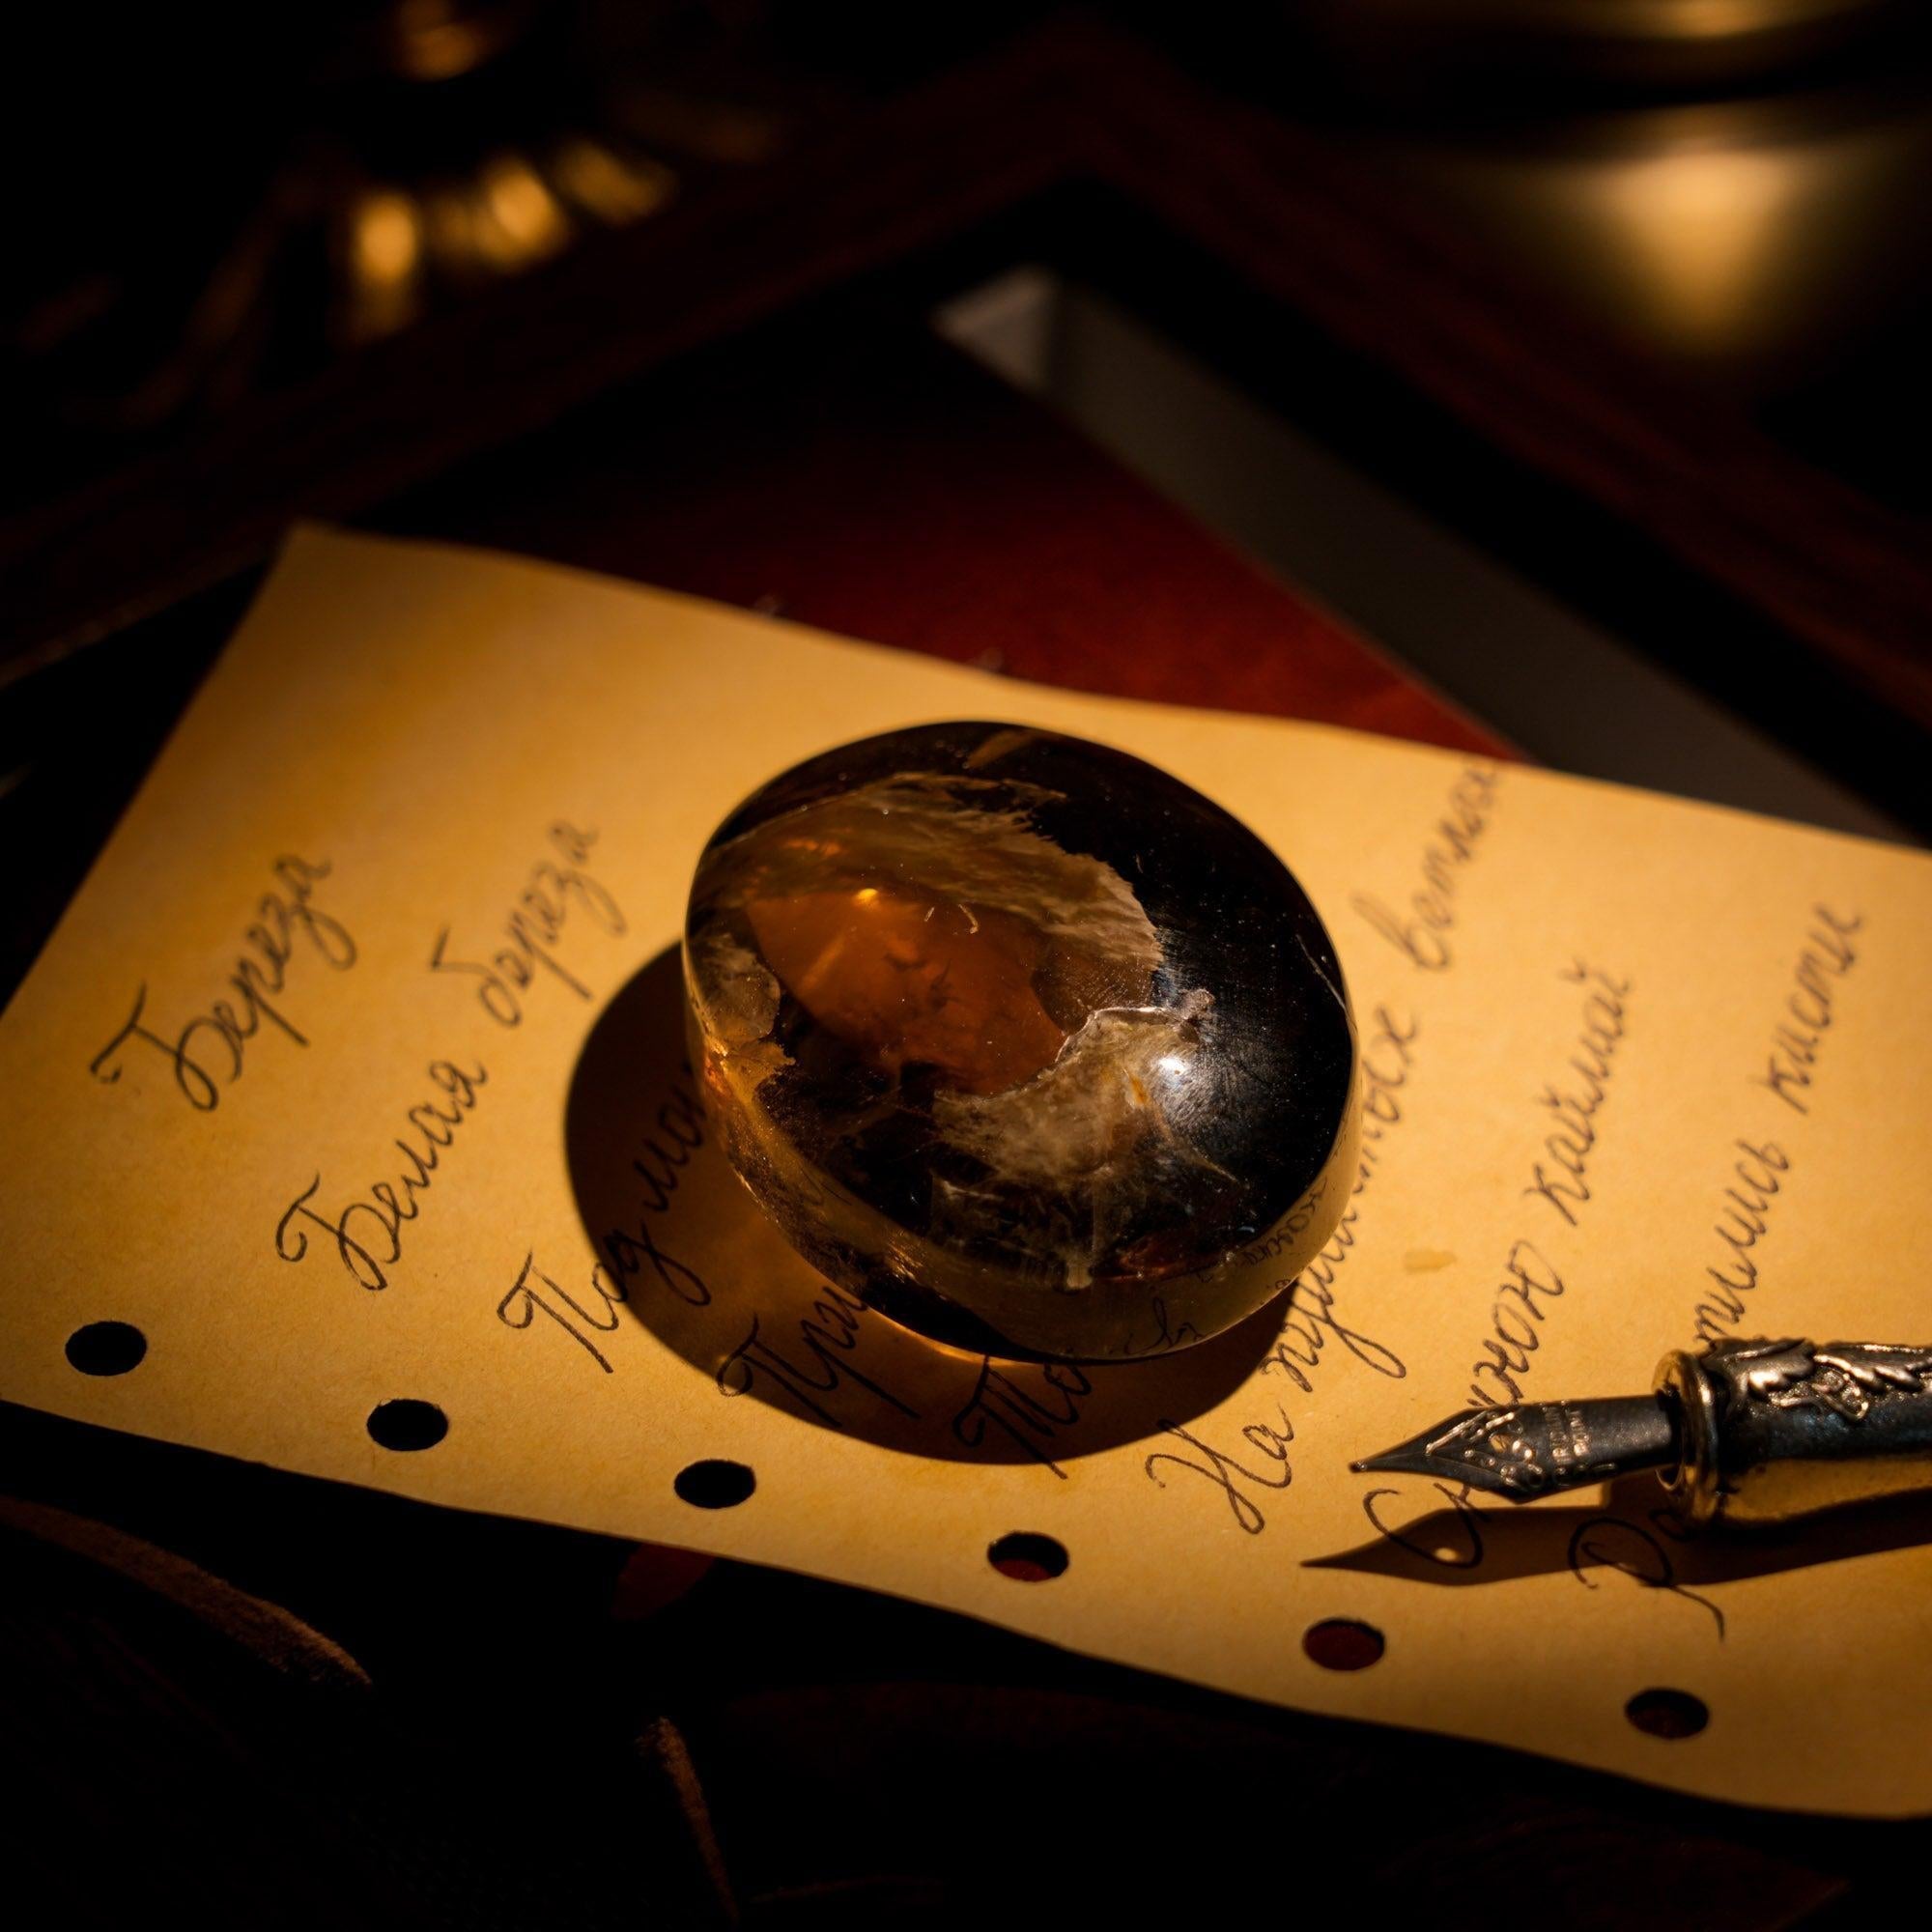 Береза
Белая береза
Под мои
При
То
На пушистых ветках
Снежною каймой
Распустились кисти